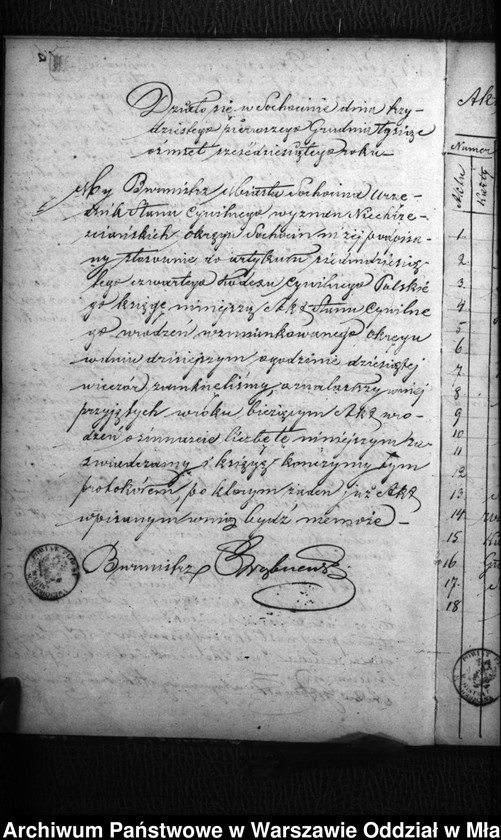 Działo się w Sochocinie dnia trzy-
dziestego pierwszego Grudnia tysiące
ośmset sześćdziesiątego roku
My Burmistrz Miasta Sochocina Urzę-
dnik Stanu Cywilnego wyznań Niechrze-
ściańskich okręgu Sochocin niżej podpisa-
ny stosownie do artykułu siedmdziesią-
tego czwartego Kodexu Cywilnego Polskie
go księgę niniejszą Akt Stanu Cywilne
go urodzeń wzmiankowanego okręgu
w dniu dzisiejszym o godzinie dziesiątej
wieczór zamkneliśmy, a znalazłszy w niej
przyjętych w roku bieżącym Akt uro-
dzeń ośmnaście liczbę tę niniejszym za-
świadczamy i księgę kończymy tym
protokółem, po którym żaden już Akt
wpisanym w nią bydź niemoże -
Burmistrz
Ak
Numer
Aktu
1.
2.
3.
4.
5
6.
7.
8.
9
10
11
12
13
14.
15
16.
17.
18
Archiwum Państwowe w Warszawie Oddział w Mła